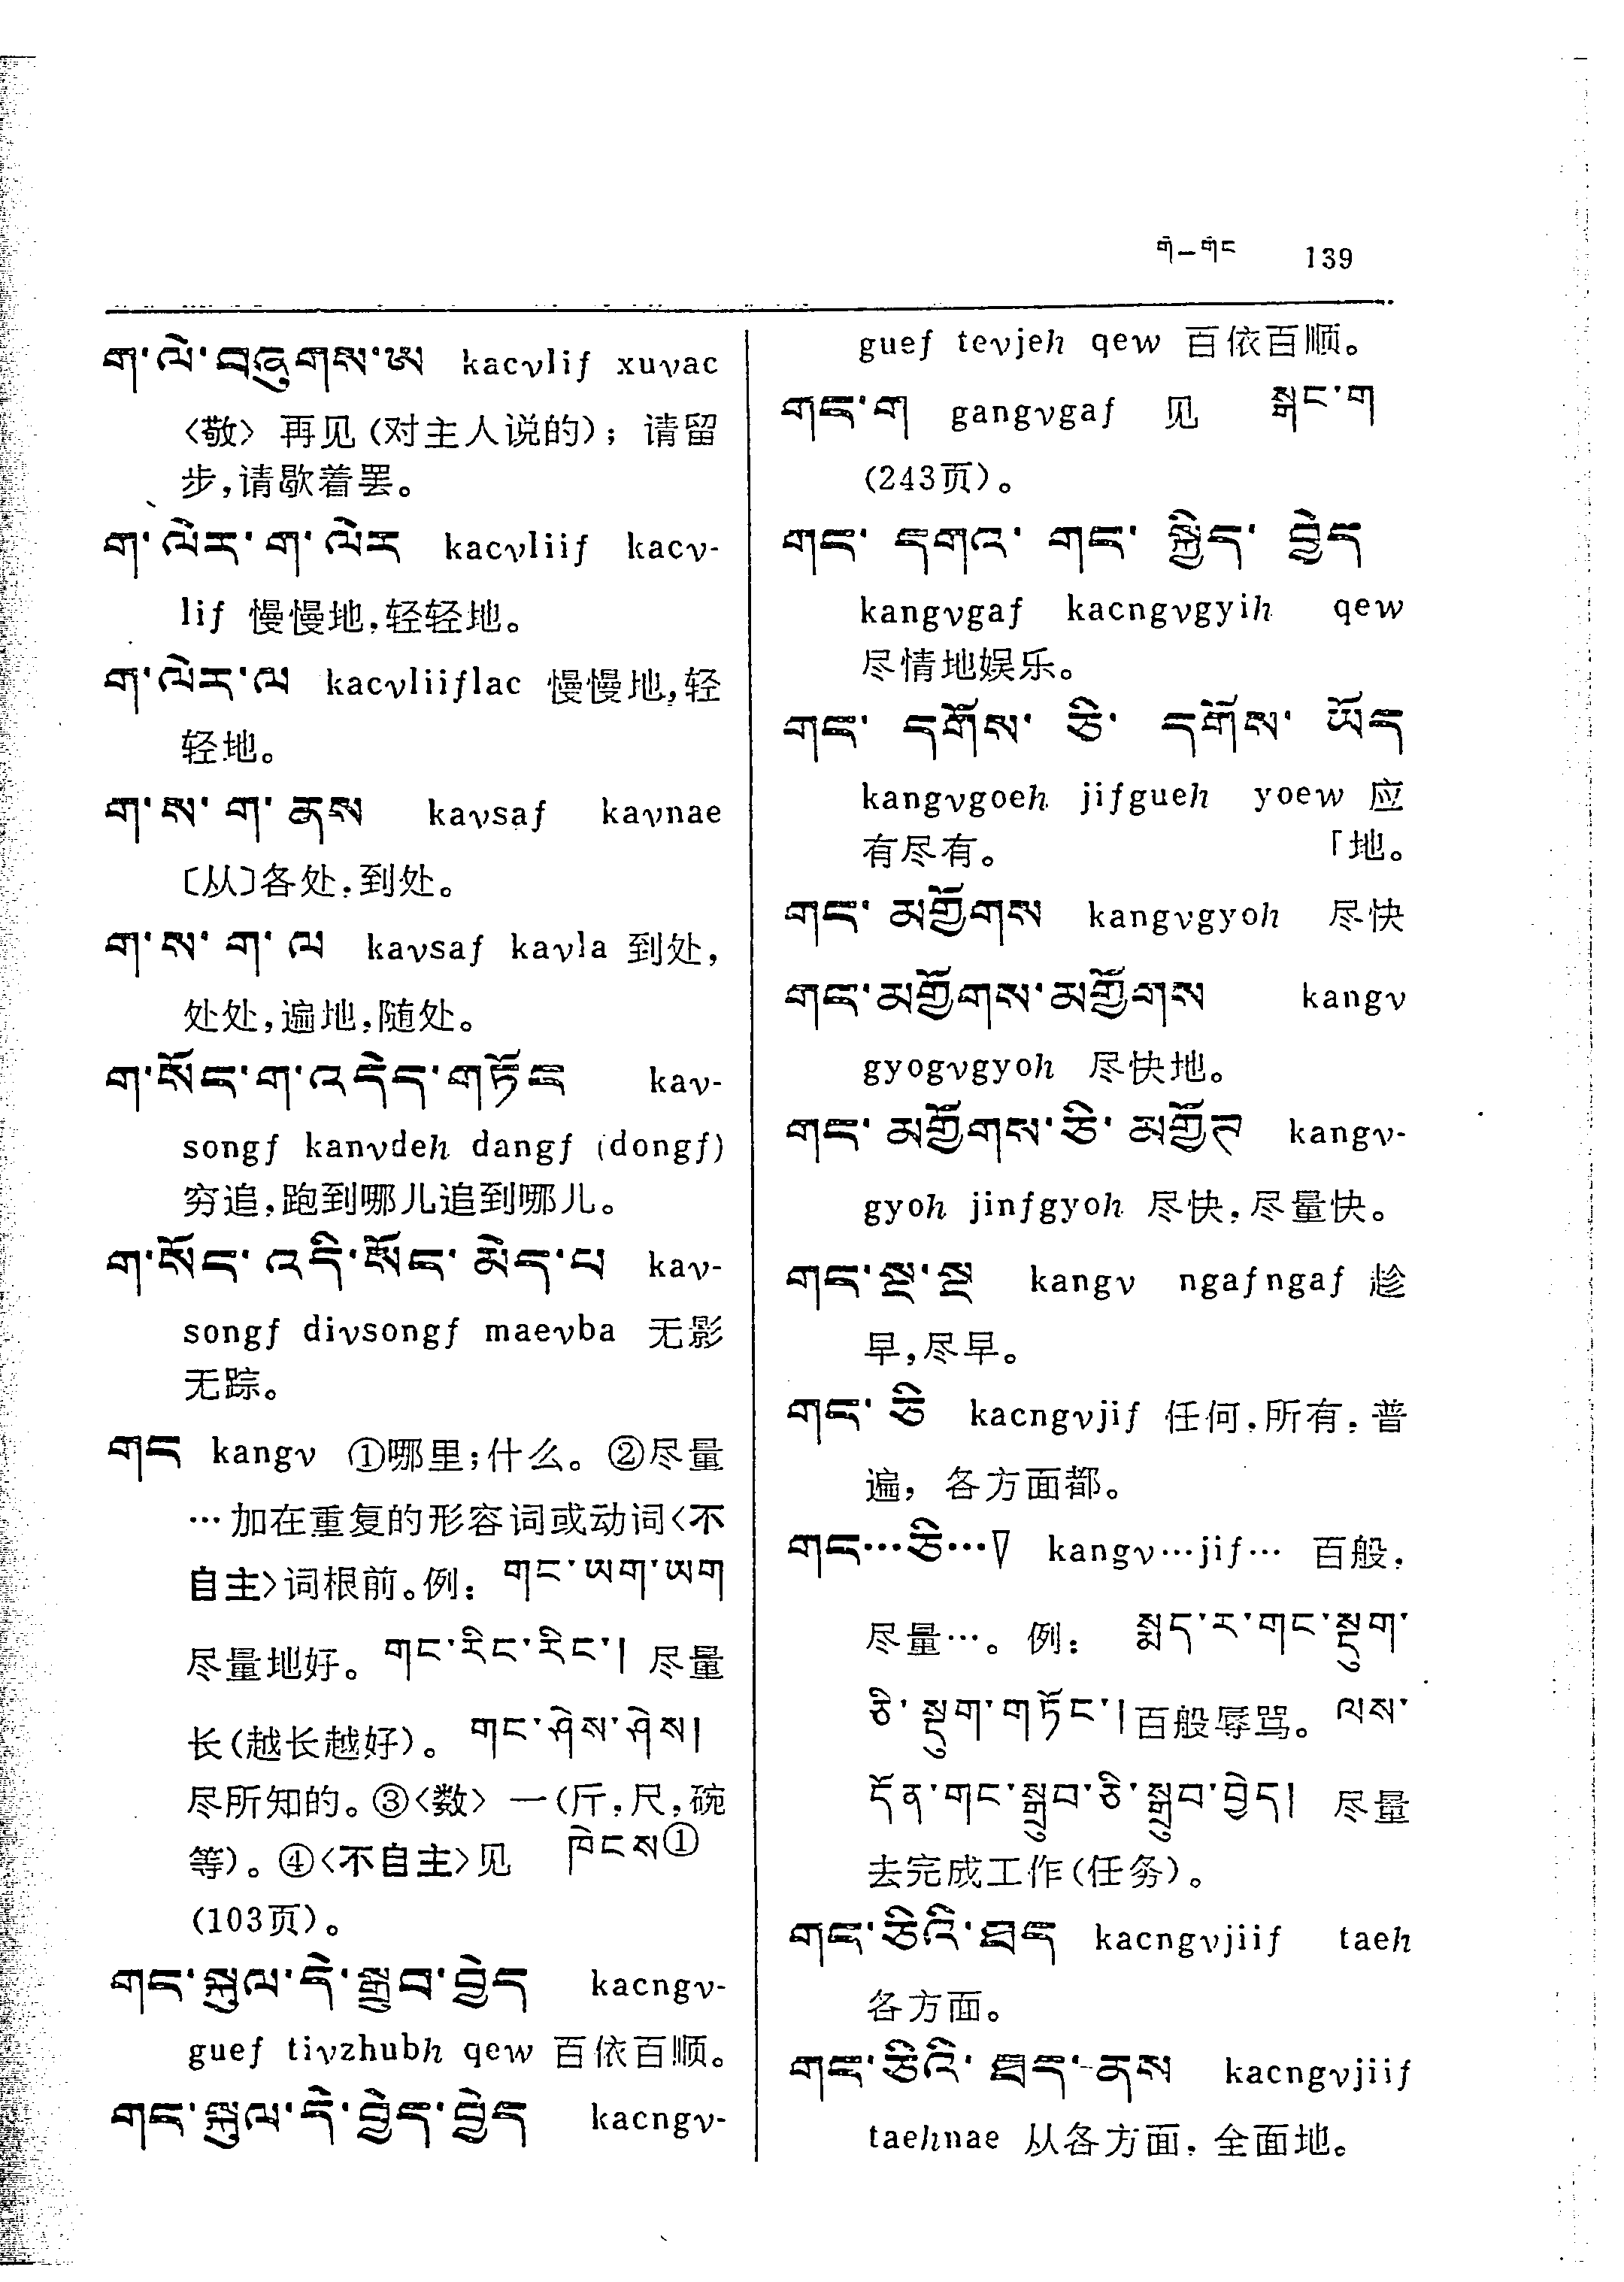 ག—གང 139
ག་ལེ་བཞུགས་ཨ kacvlif xuvac
〈敬〉再见(对主人说的)；请留
步,请歇着罢。
ག་ལེར་ག་ལེར kacvliif kacv-
lif 慢慢地,轻轻地。
ག་ལེར་ལ kacvliiflac 慢慢地,轻
轻地。
ག་ས་ག་ནས kavsaf kavnae
〔从〕各处,到处。
ག་ས་ག་ལ kavsaf kavla 到处,
处处,遍地,随处。
ག་སོང་ག་འདེད་གཏོང kav-
songf kanvdeh dangf (dongf)
穷追,跑到哪儿追到哪儿。
ག་སོང་འདི་སོང་མེད་པ kav-
songf divsongf maevba 无影
无踪。
གང kangv ①哪里;什么。②尽量
…加在重复的形容词或动词〈不
自主〉词根前。例: གང་ཡག་ཡག
尽量地好。གང་རིང་རིང་། 尽量
长(越长越好)。གང་ཤེས་ཤེས།
尽所知的。③〈数〉一(斤,尺,碗
等)。④〈不自主〉见 ཁེངས①
(103页)。
གང་སྐུལ་དེ་སྒྲུབ་བྱེད kacngv-
guef tivzhubh qew 百依百顺。
གང་སྐུལ་དེ་བྱེད་བྱེད kacngv-
guef tevjeh qew 百依百顺。
གང་ག gangvgaf 见 སྒང་ག
(243页)。
གང་དགའ་གང་སྐྱིད་བྱེད
kangvgaf kacngvgyih qew
尽情地娱乐。
གང་དགོས་ཅི་དགོས་ཡོད
kangvgoeh jifgueh yoew 应
有尽有。 「地。
གང་མགྱོགས kangvgyoh 尽快
གང་མགྱོགས་མགྱོགས kangv
gyogvgyoh 尽快地。
གང་མགྱོགས་ཅི་མགྱོཊ kangv-
gyoh jinfgyoh 尽快,尽量快。
གང་སྔ་སྔ kangv ngafngaf 趁
早,尽早。
གང་ཅི kacngvjif 任何,所有,普
遍，各方面都。
གང…ཅི…། kangv…jif… 百般,
尽量…。例: སྨད་ར་གང་སྡུག་
ཅི་སྡུག་གཏོང་། 百般辱骂。ལས་
དོན་གང་སྒྲུབ་ཅི་སྒྲུབ་བྱེད། 尽量
去完成工作(任务)。
གང་ཅིའི་ཐད kacngvjiif taeh
各方面。
གང་ཅིའི་ཐད་ནས kacngvjiif
taehnae 从各方面,全面地。